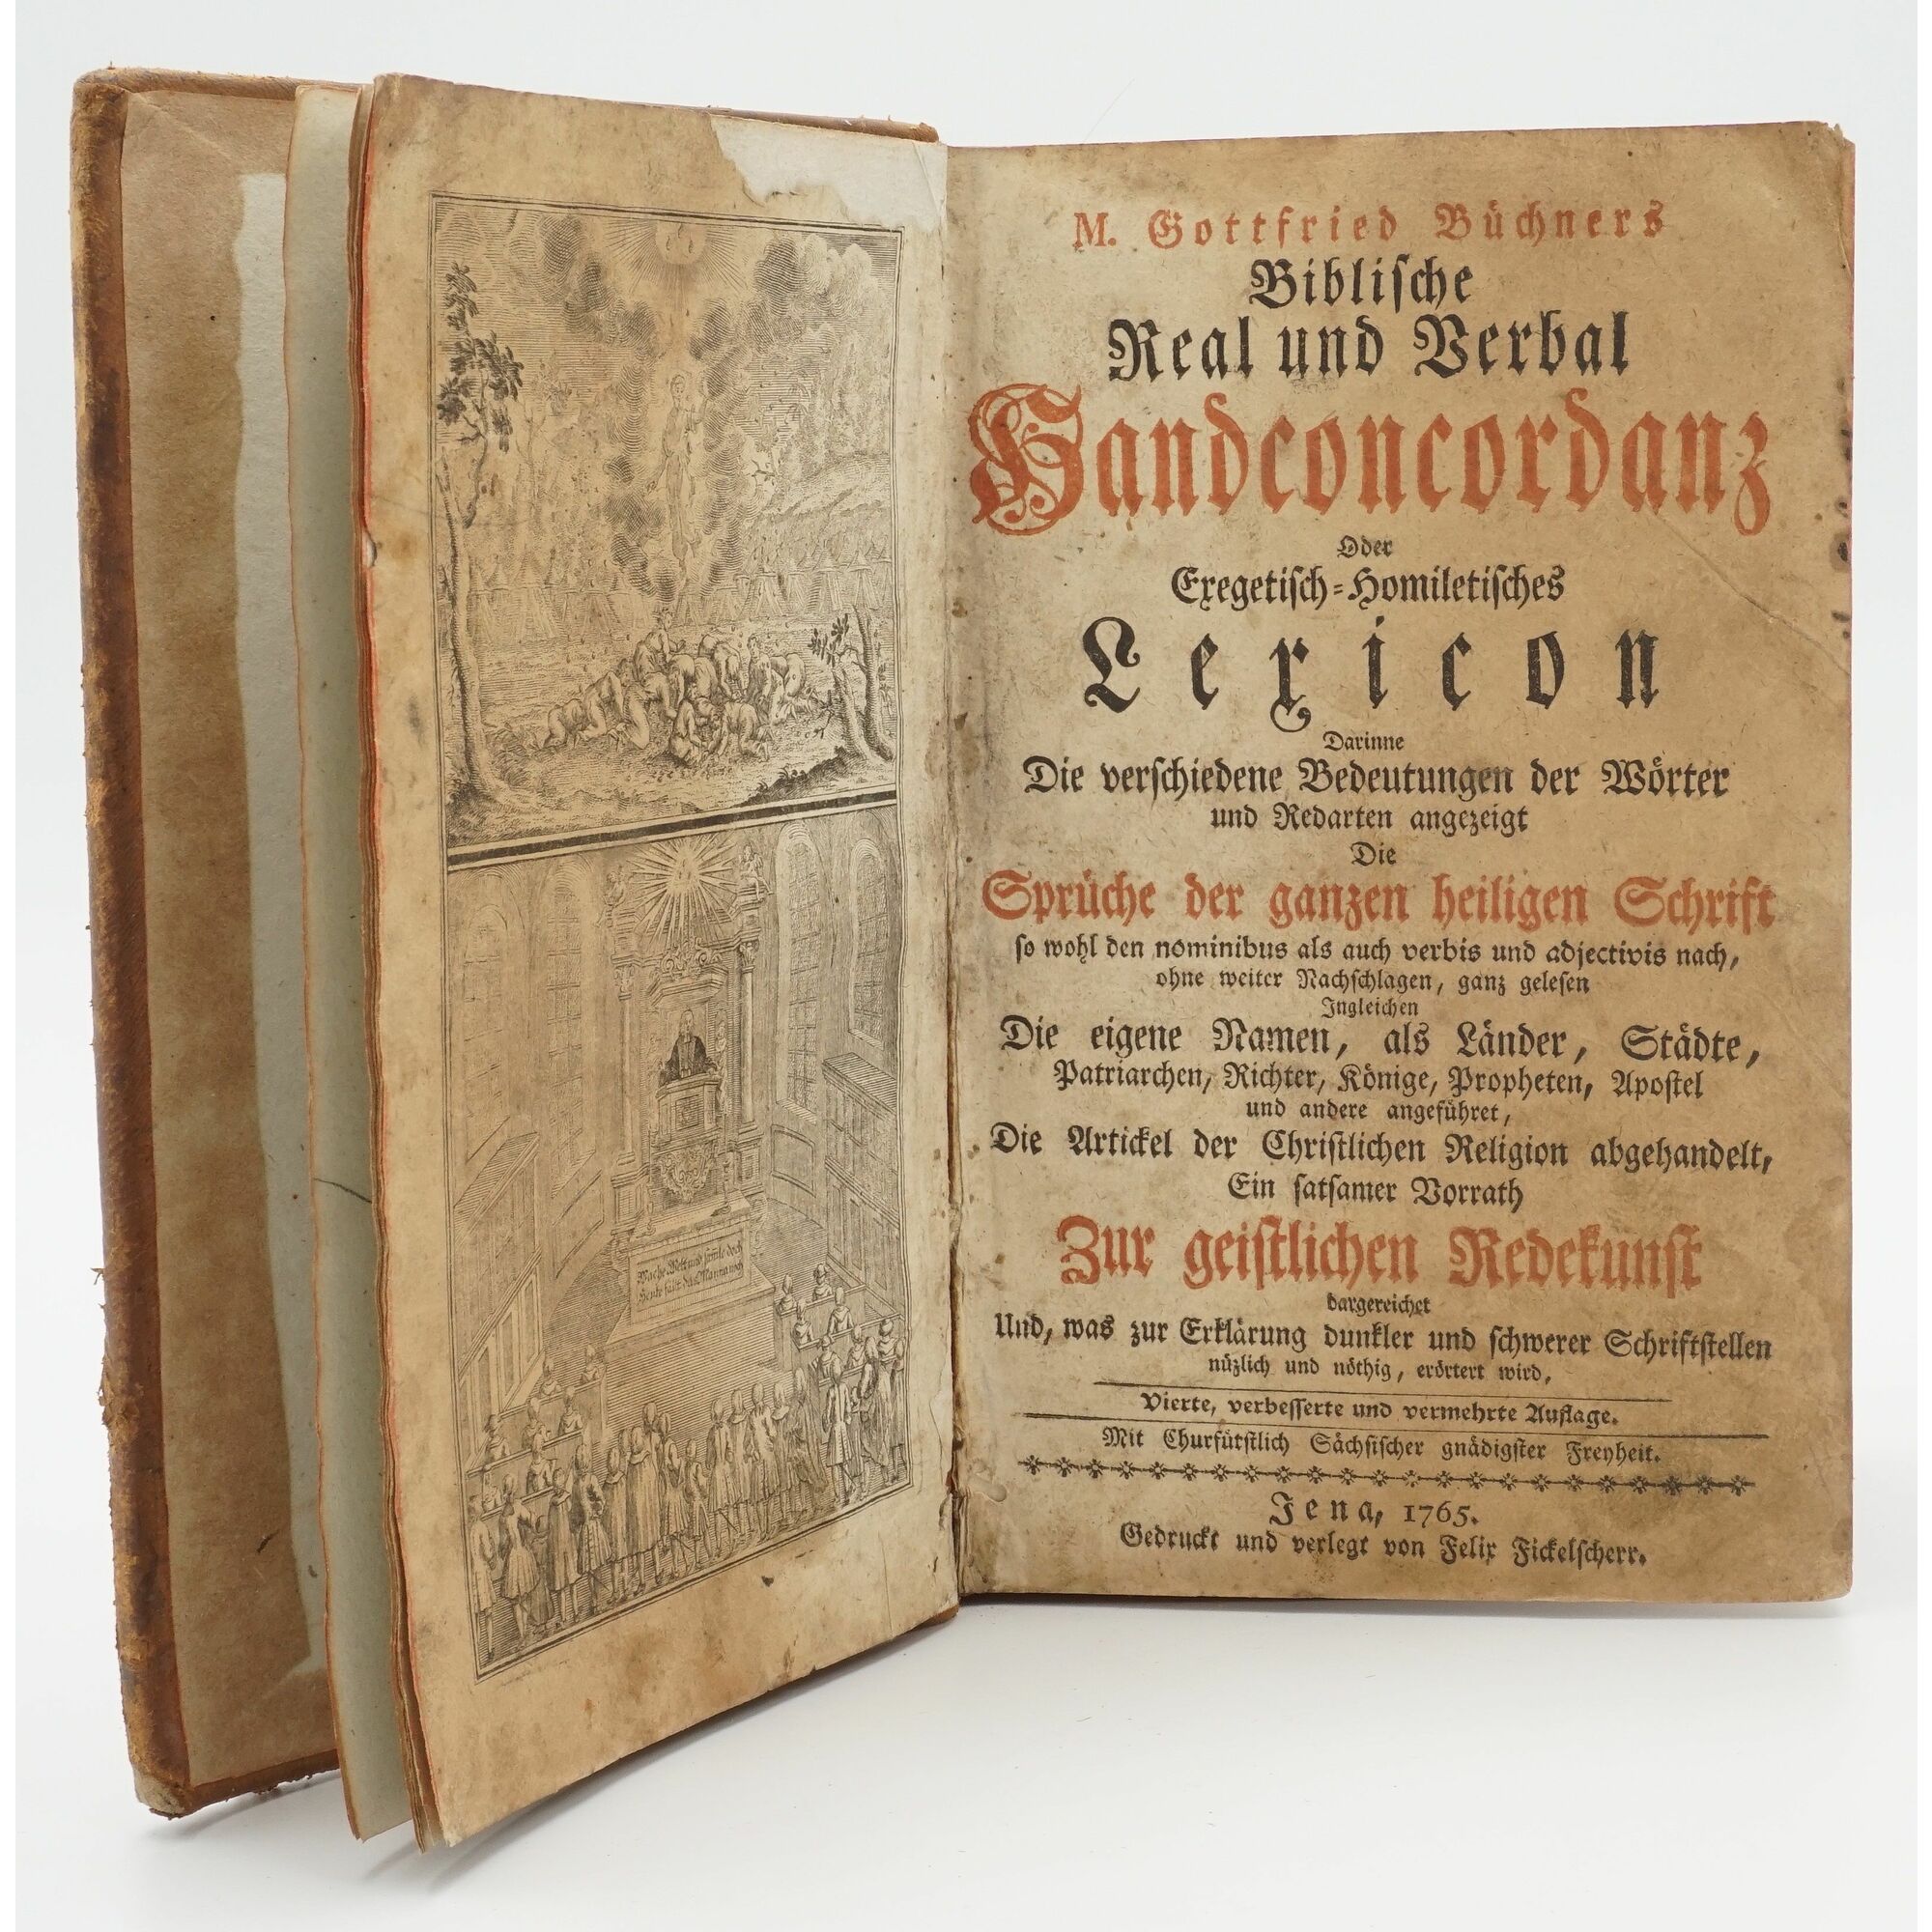 Mache Welt und samle doch
Heute fält das Manna noch
M. Gottfried Büchners
Biblische
Real und Verbal
Handconcordanz
Oder
Exegetisch-Homiletisches
Lexicon
Darinne
Die verschiedene Bedeutungen der Wörter
und Redarten angezeigt
Die
Sprüche der ganzen heiligen Schrift
so wohl den nominibus als auch verbis und adjectivis nach,
ohne weiter Nachschlagen, ganz gelesen
Ingleichen
Die eigene Namen, als Länder, Städte,
Patriarchen, Richter, Könige, Propheten, Apostel
und andere angeführet,
Die Artickel der Christlichen Religion abgehandelt,
Ein satsamer Vorrath
Zur geistlichen Redekunst
dargereichet
Und, was zur Erklärung dunkler und schwerer Schriftstellen
nüzlich und nöthig, erörtert wird,
Vierte, verbesserte und vermehrte Auflage.
Mit Churfürstlich Sächsischer gnädigster Freyheit.
Jena, 1765.
Gedruckt und verlegt von Felix Fickelscherr.